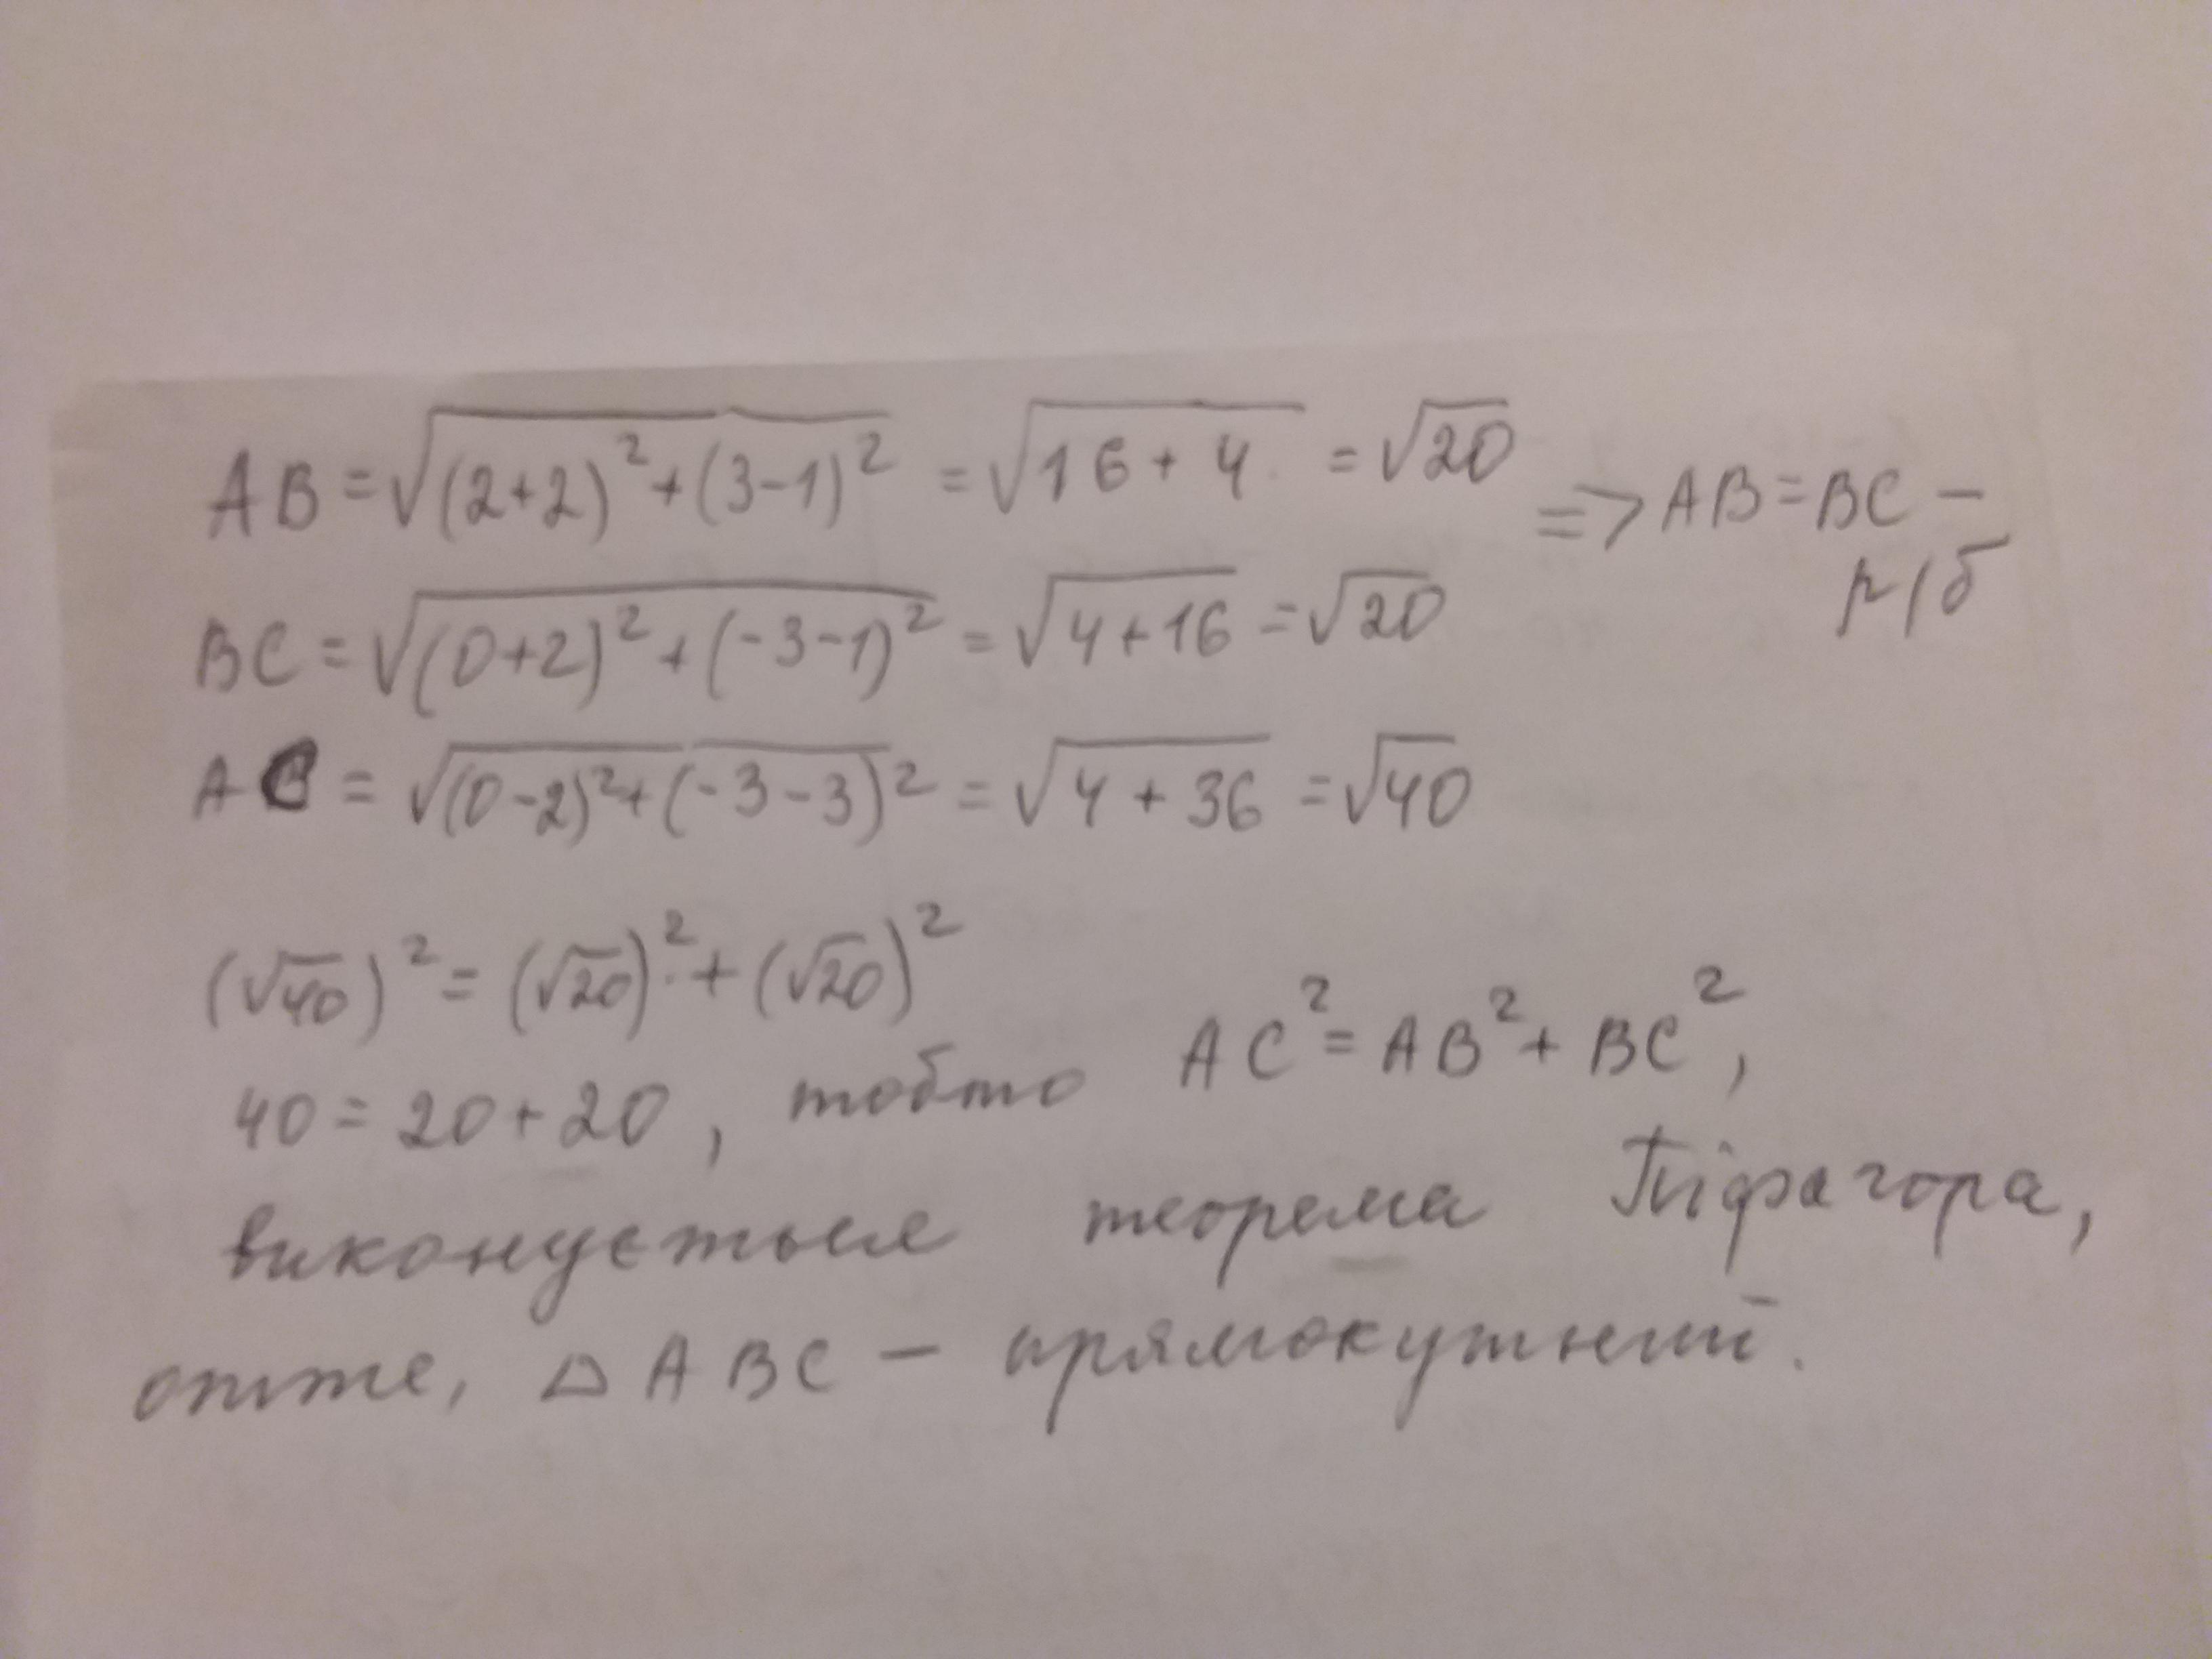 AB = √(2+2)² + (3-1)² = √16 + 4 = √20
=> AB = BC –
р/б
BC = √(0+2)² + (-3-1)² = √4+16 = √20
AC = √(0-2)² + (-3-3)² = √4 + 36 = √40
(√40)² = (√20)² + (√20)²
40 = 20 + 20, тобто AC² = AB² + BC²,
виконується теорема Піфагора,
отже, △ABC – прямокутний.